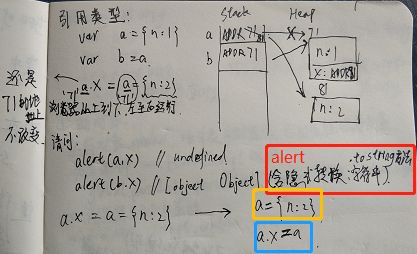 引用类型:
var a={n:1}
var b=a;
a.x = a={n:2}
71
71
浏览器从上到下,左至右运行
还是
71的地址
不改变
请问:
alert(a.x) // undefined
alert(b.x) // [object Object]
alert
.tostring方法
(会隐式转换:字符串).
a.x = a={n:2} → a={n:2}
a.x=a
Stack
Heap
a ADDR71
b ADDR71
71
n:1
x: ADDR81
81
n:2